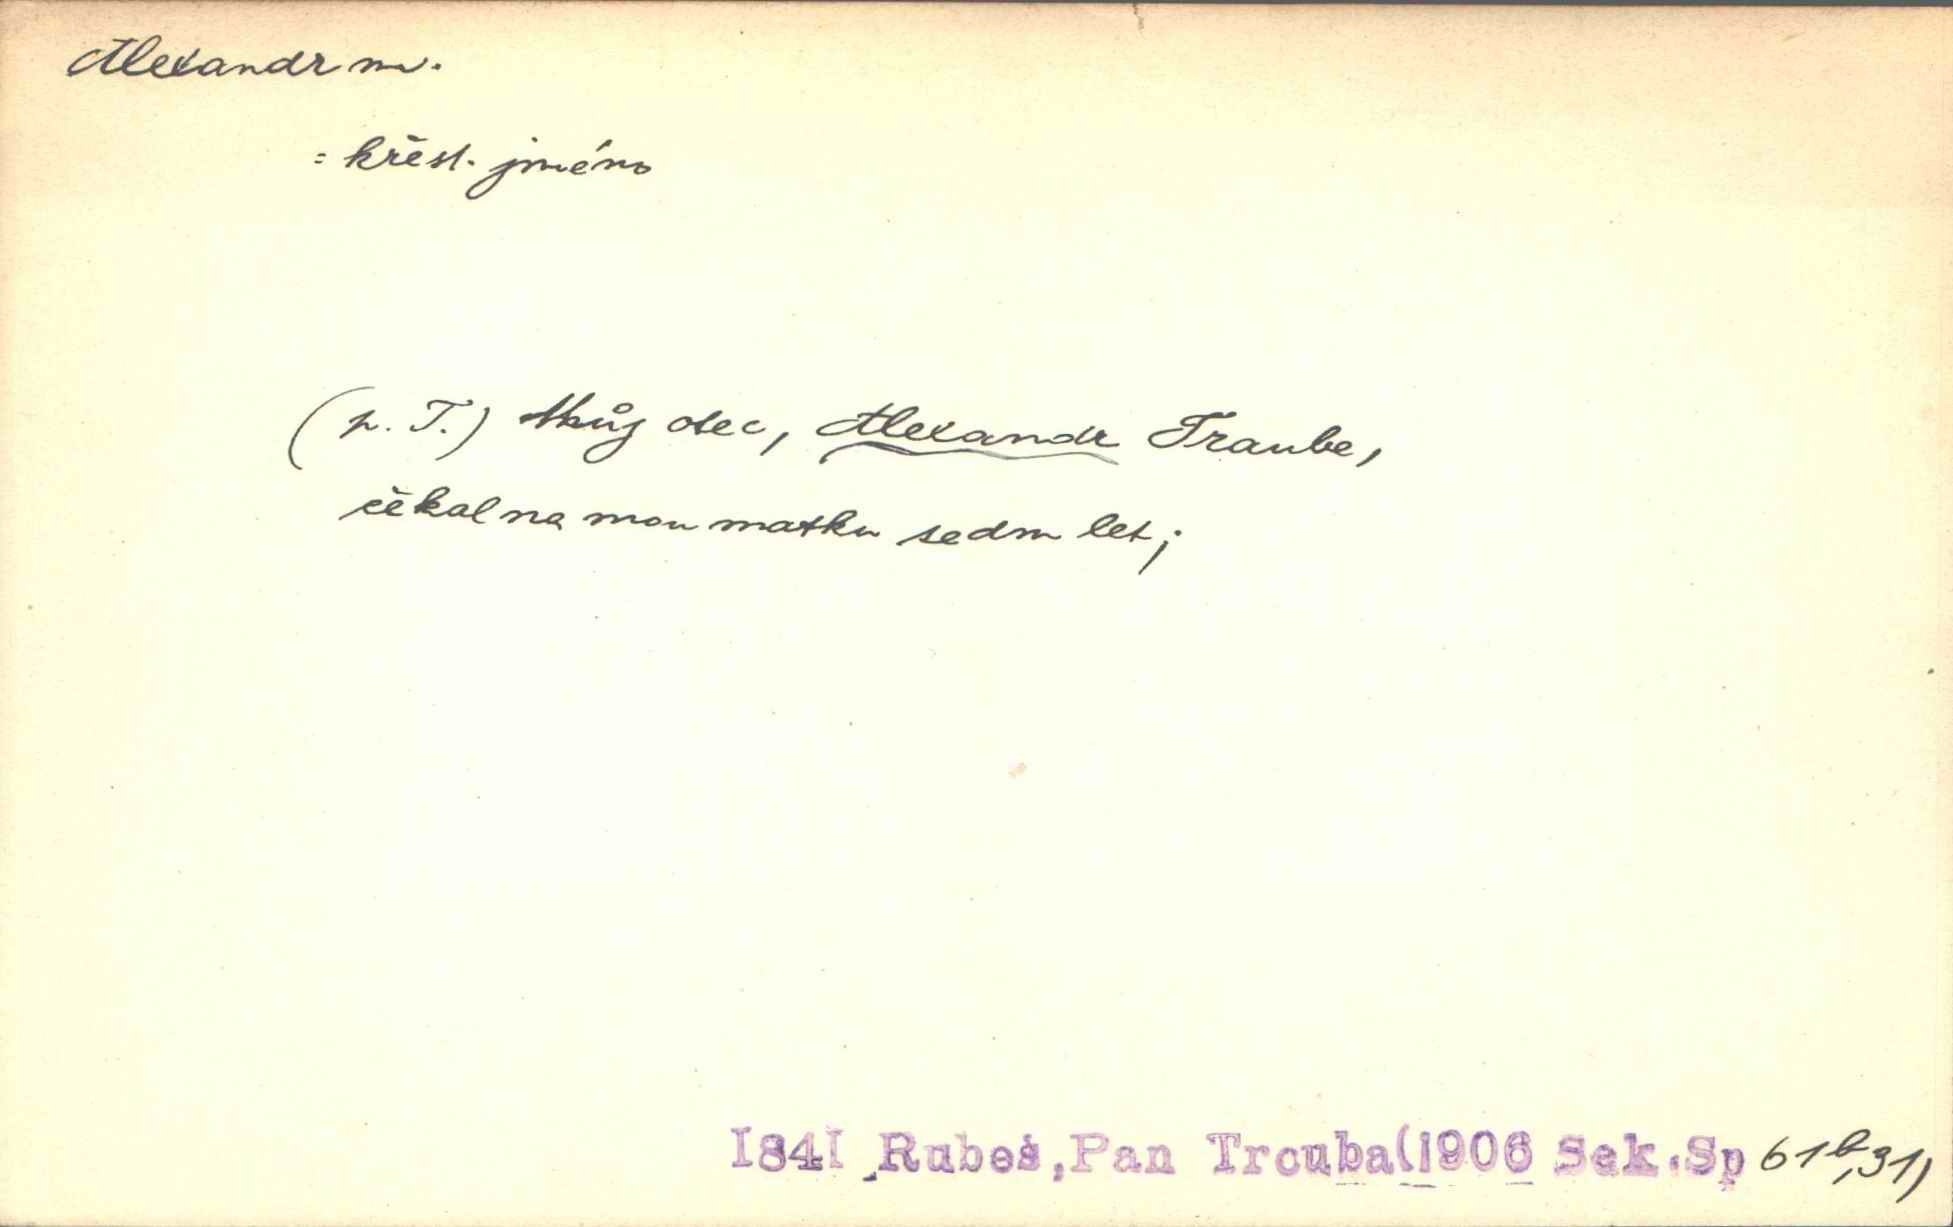 Alexandr m.
= křest. jméno
(p. T.) Můj otec, Alexandr Traube,
čekal na mou matku sedm let;
I84I Rubeš, Pan Trouba(1906 Sek.Sp 61b,31)